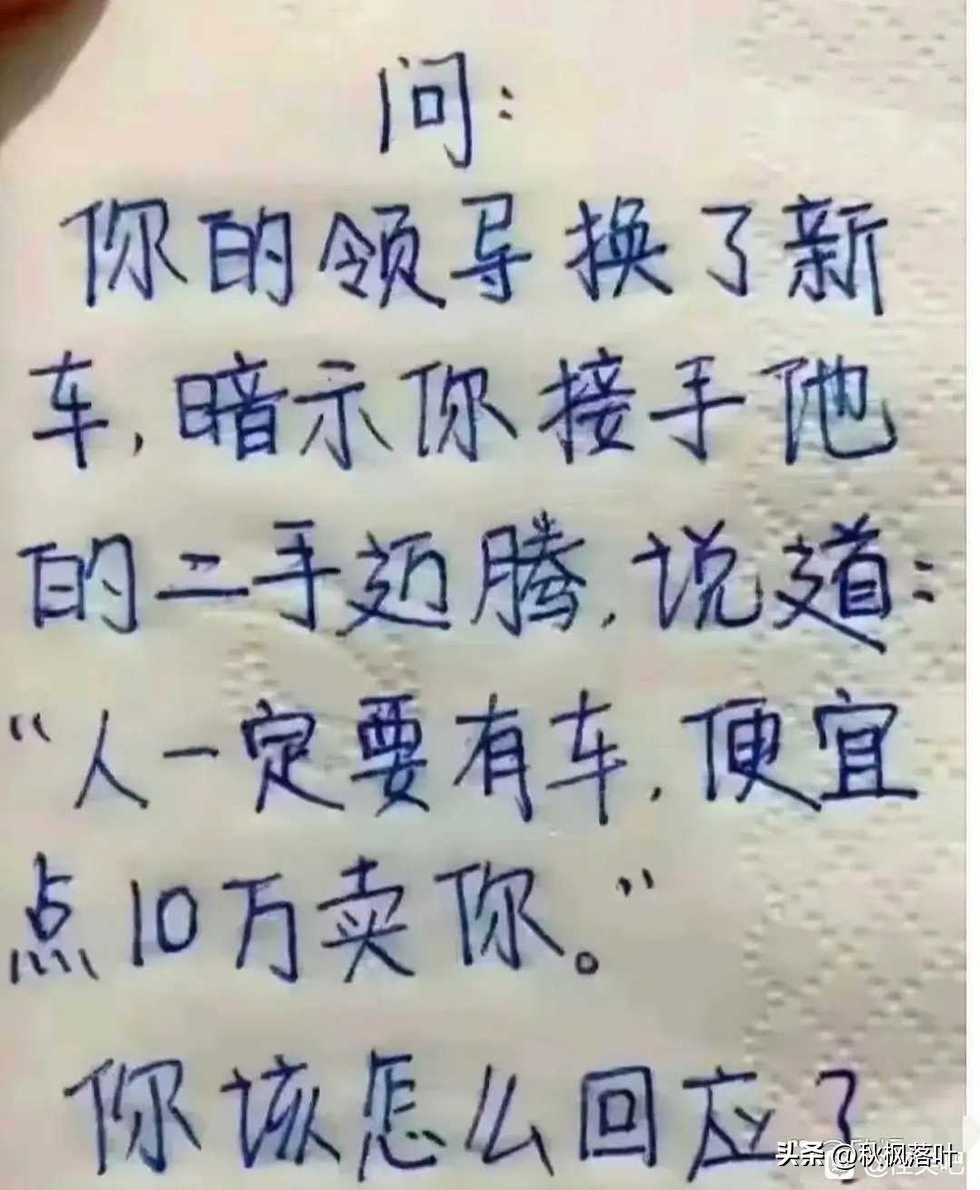 问：
你的领导换了新
车，暗示你接手他
的二手迈腾，说道：
“人一定要有车，便宜
点10万卖你。”
你该怎么回应？
头条 @秋枫落叶